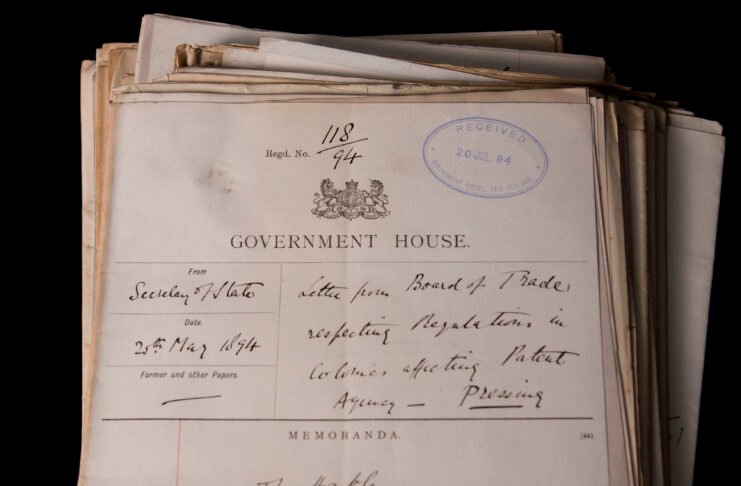 118
Regd. No. 94
RECEIVED
20 JUL.94
GOVERNMENT HOUSE, NEW ZEALAND.
GOVERNMENT HOUSE.
From
Secretary of State
Date.
25th May 1894
Former and other Papers.
—
Letter from Board of Trade
respecting Regulations in
Colonies affecting Patent
Agency — Pressing
MEMORANDA.